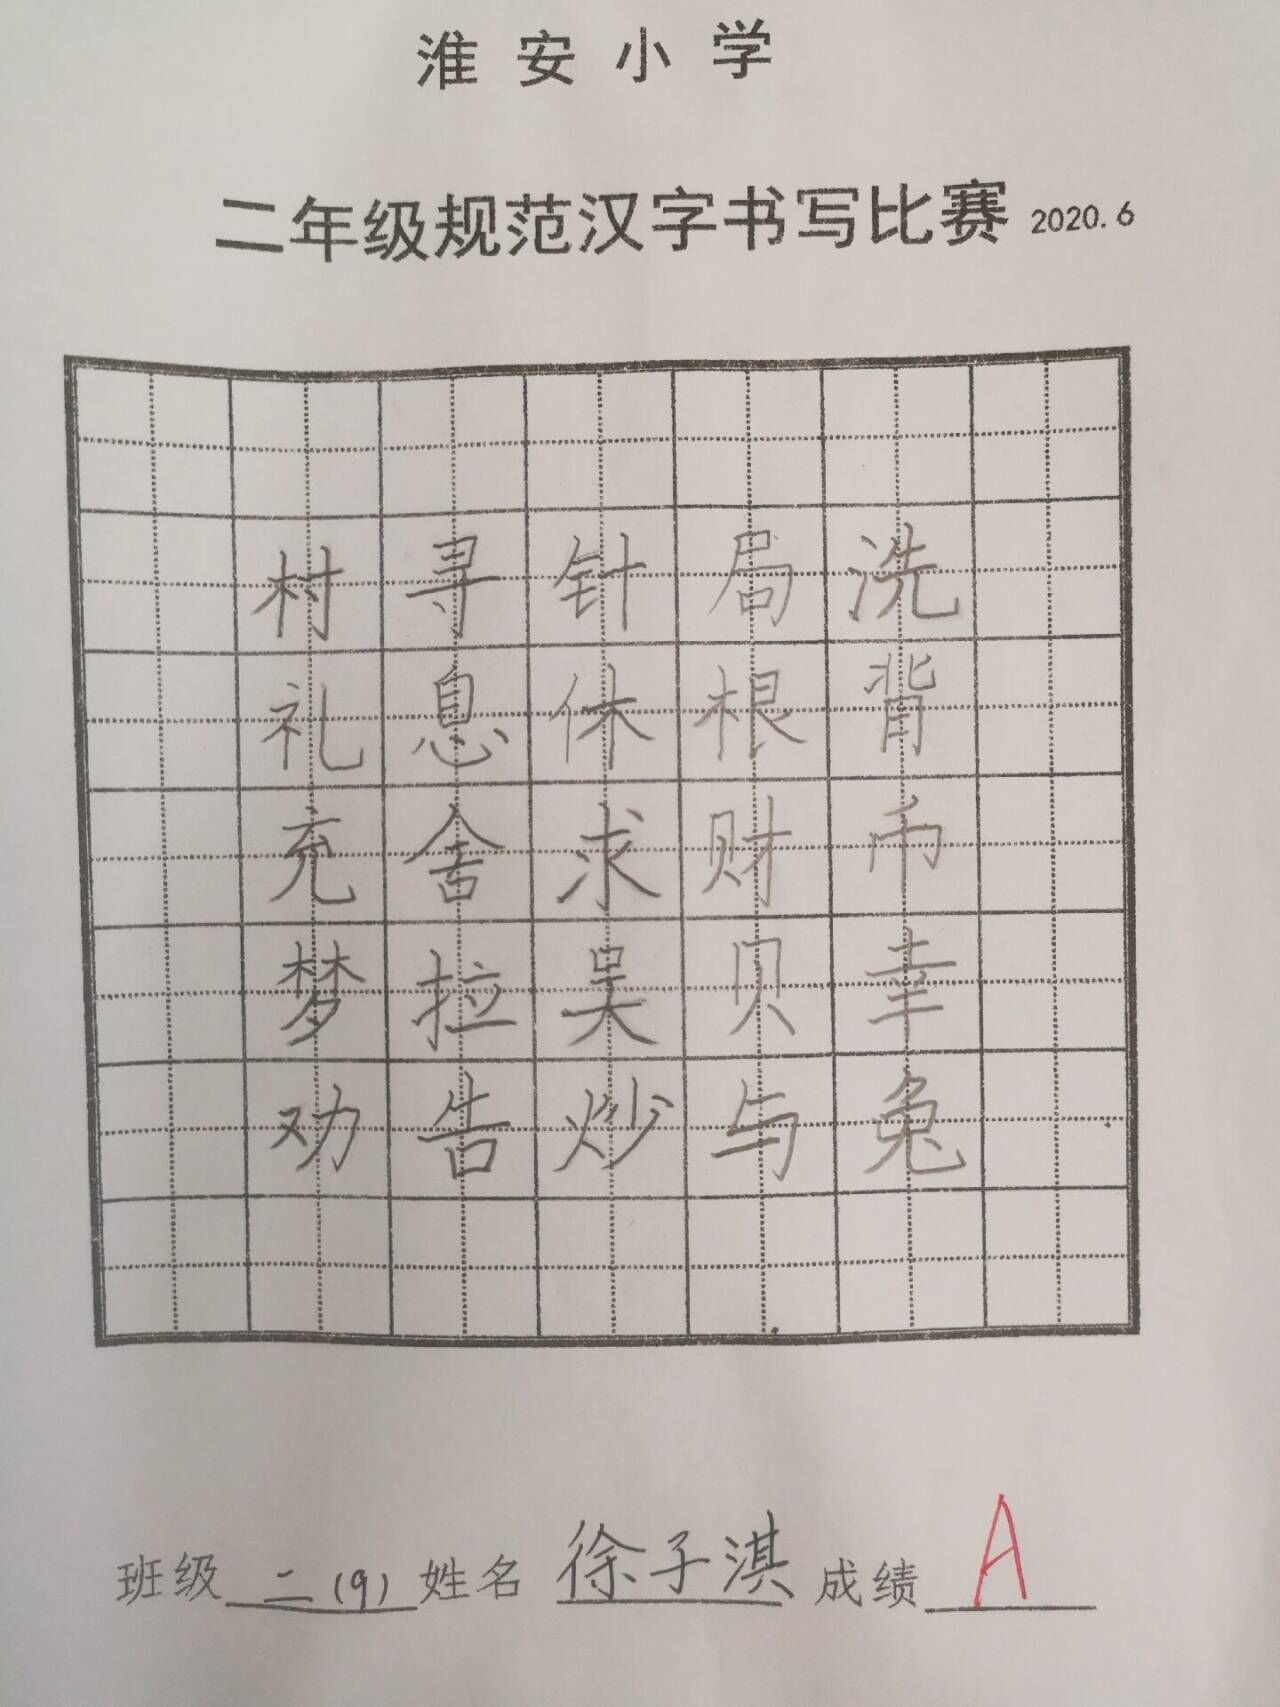 淮安小学
二年级规范汉字书写比赛 2020.6
村寻针局洗
礼息休根背
充舍求财币
梦拉吴贝幸
劝告炒与兔
班级 二(9) 姓名 徐子淇 成绩 A